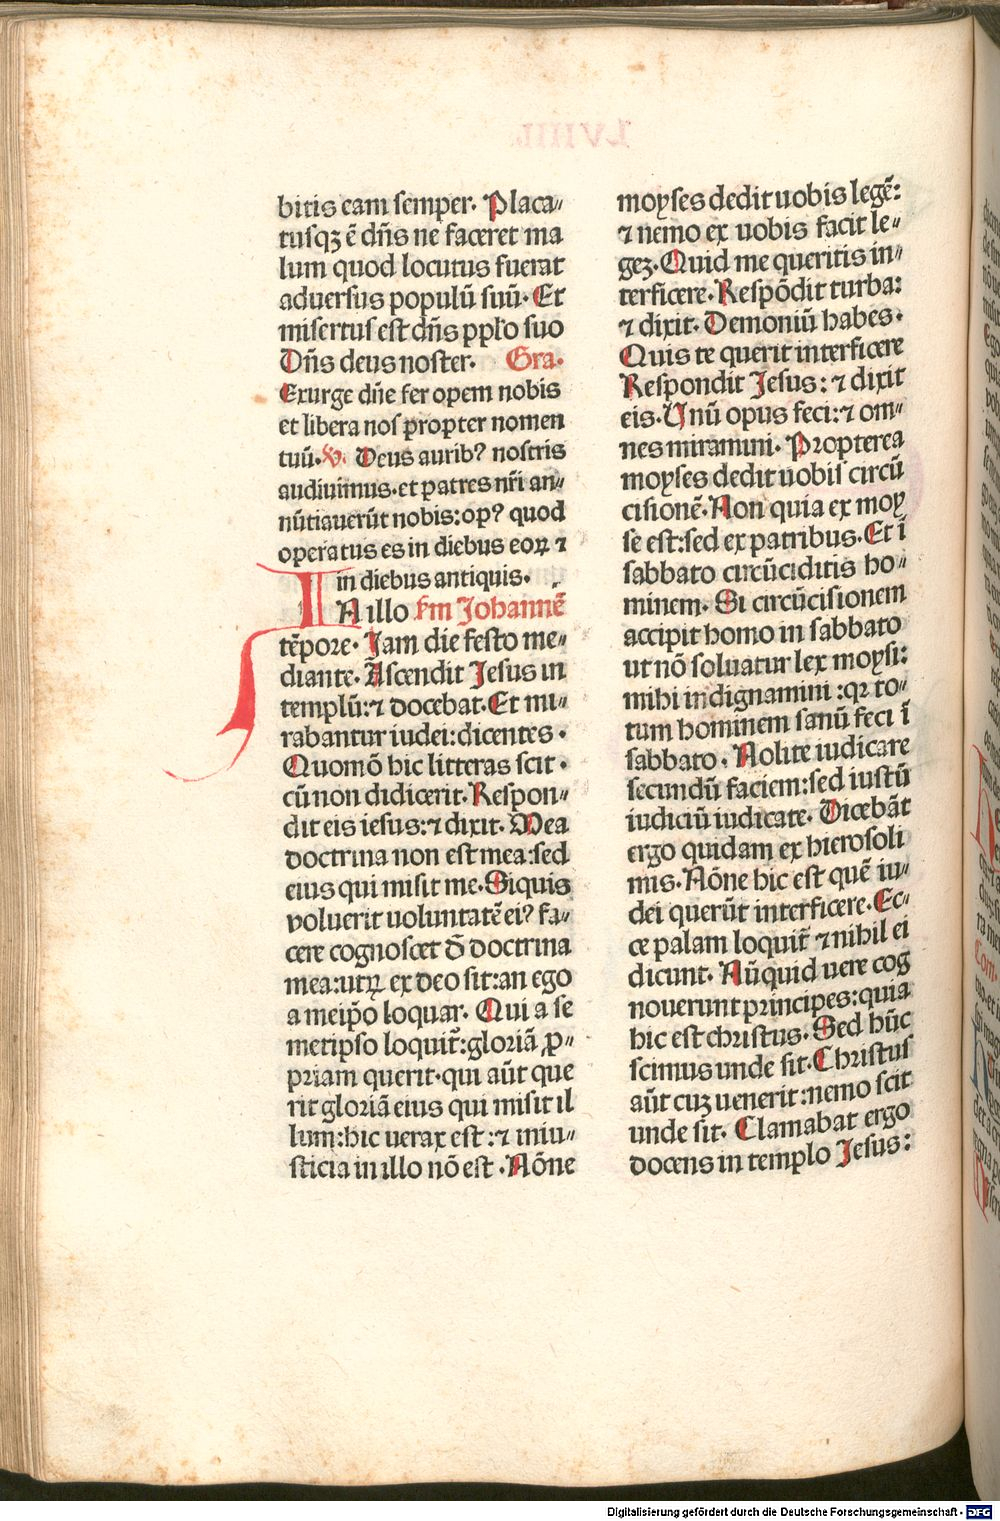 bitis eam semper. Placa-
tusqꝫ ē dn̄s ne faceret ma
lum quod locutus fuerat
aduersus populū suū. Et
misertus est dn̄s pp̄lo suo
Dn̄s deus noster. Gra.
Exurge dn̄e fer opem nobis
et libera nos propter nomen
tuū. v. Deus aurib? nostris
audiuimus. et patres nr̄i an-
nūtiauerūt nobis: op? quod
operatus es in diebus eoꝝ ⁊
in diebus antiquis.
IN illo fm Johannē
tēpore. Jam die festo me-
diante. Ascendit Jesus in
templū: ⁊ docebat. Et mi-
rabantur iudei: dicentes.
Quomō hic litteras scit.
cū non didicerit. Respon-
dit eis iesus: ⁊ dixit. Mea
doctrina non est mea: sed
eius qui misit me. Siquis
voluerit uoluntatē ei? fa-
cere cognoscet d̄ doctrina
mea: utꝝ ex deo sit: an ego
a meip̄o loquar. Qui a se
metipso loquit̄: gloriā ꝓ-
priam querit. qui aūt que
rit gloriā eius qui misit il
lum: hic uerax est: ⁊ iniu-
sticia in illo nō est. Nōne
moyses dedit uobis legē:
⁊ nemo ex uobis facit le-
geꝫ. Quid me queritis in-
terficere. Respōdit turba:
⁊ dixit. Demoniū habes.
Quis te querit interficere
Respondit Jesus: ⁊ dixit
eis. Unū opus feci: ⁊ om-
nes miramini. Propterea
moyses dedit uobis circū
cisionē. Non quia ex moy
se est: sed ex patribus. Et ī
sabbato circūciditis ho-
minem. Si circūcisionem
accipit homo in sabbato
ut nō soluatur lex moysi:
mihi indignamini: qꝛ to-
tum hominem sanū feci ī
sabbato. Nolite iudicare
secundū faciem: sed iustū
iudiciū iudicate. Dicebāt
ergo quidam ex hierosoli
mis. Nōne hic est quē iu-
dei querūt interficere. Ec-
ce palam loquit̄ ⁊ nihil ei
dicunt. Nūquid uere cog
nouerunt principes: quia
hic est christus. Sed hūc
scimus unde sit. Christus
aūt cuꝫ uenerit: nemo scit
unde sit. Clamabat ergo
docens in templo Jesus:
Digitalisierung gefördert durch die Deutsche Forschungsgemeinschaft - DFG